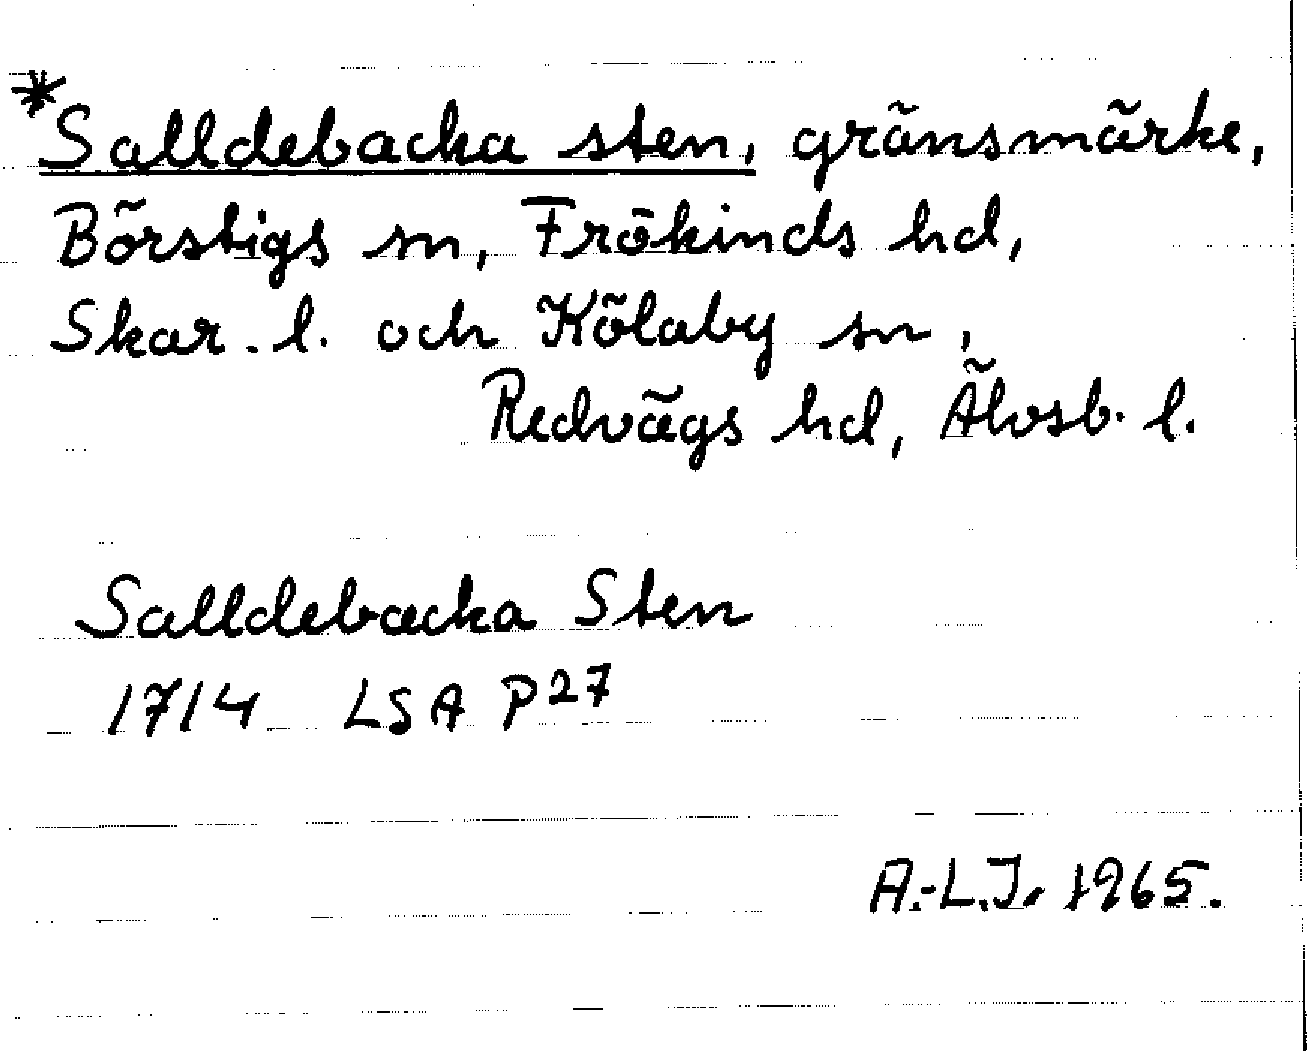 *Salldebacka sten, gränsmärke,
Börstigs sn, Frökinds hd,
Skar. l. och Kölaby sn,
Redvägs hd, Älvsb. l.
Salldebacka Sten
1714 LSA P27
A.-L.J. 1965.